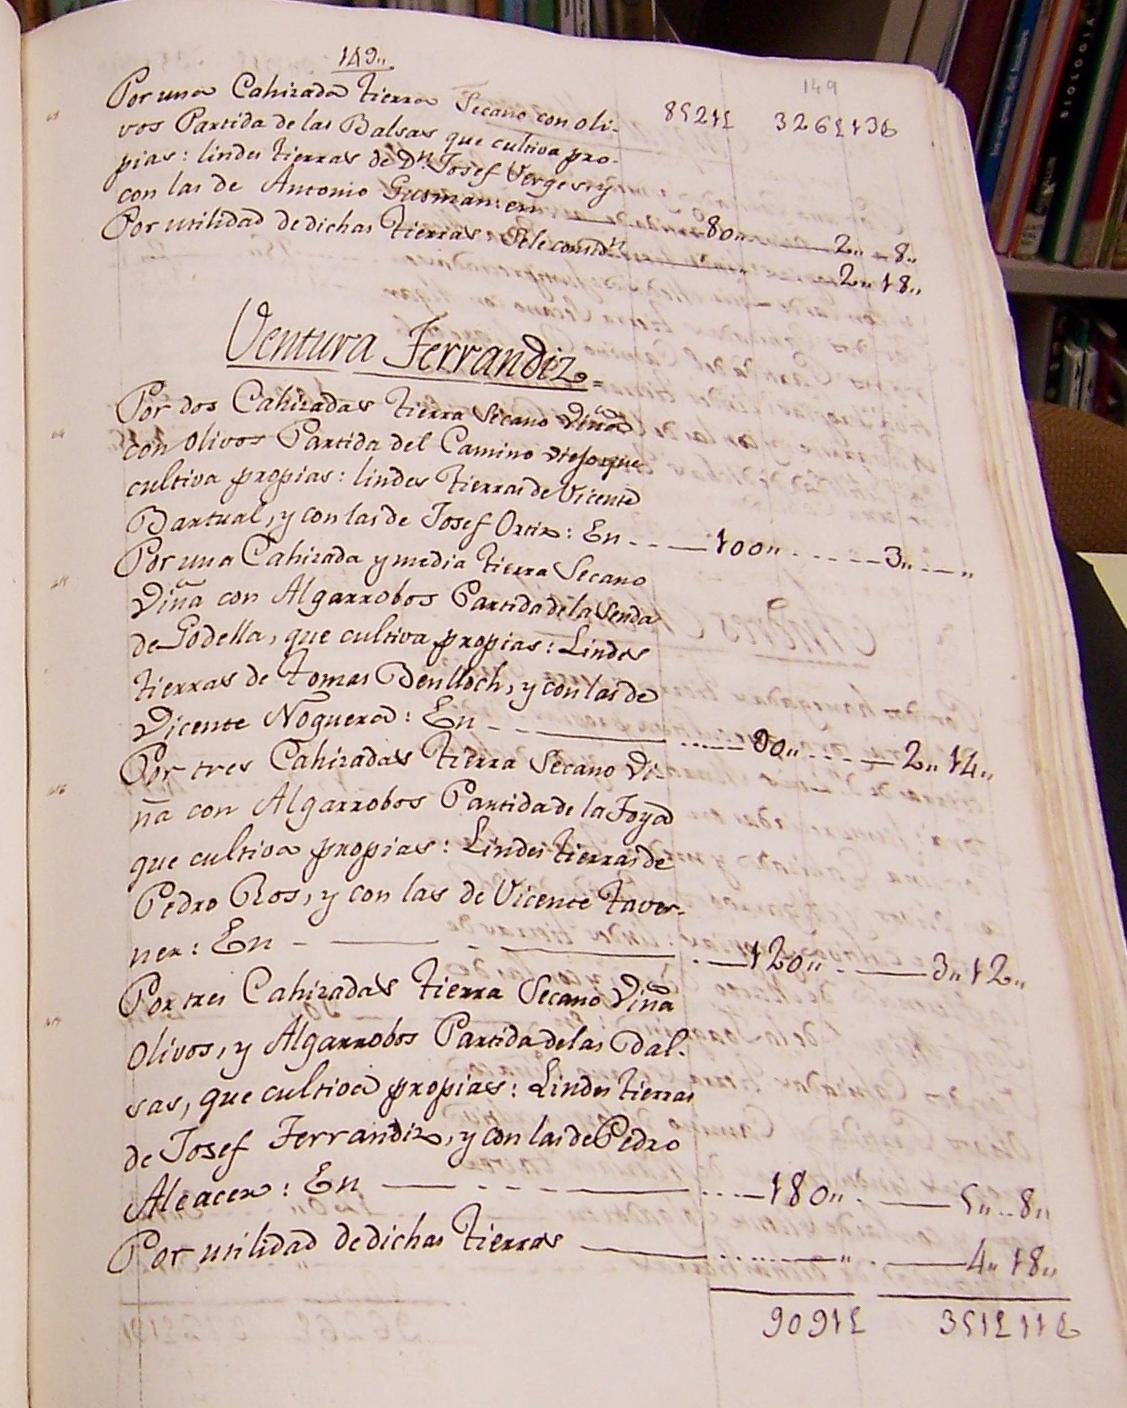 149,,
149
Por una Cahizada tierra Secano con oli-
vos Partida de las Balsas que cultiva pro-
pias: lindes tierras de Dn. Josef Verges, y
con las de Antonio Gusman: en 80,, 2,, 8,,
Por utilidad de dichas tierras 2,, 18,,
Ventura Ferrandiz
Por dos Cahizadas tierra Secano Viña
con olivos Partida del Camino viejo que
cultiva propias: lindes tierras de Vicente
Bartual, y con las de Josef Ortiz: En 100,, 3,, ,,
Por una Cahizada y media tierra Secano
Viña con Algarrobos Partida de la Senda
de Godella, que cultiva propias: Lindes
tierras de tomas Benlloch, y con las de
Vicente Noguera: En 90,, 2,, 14,,
Por tres Cahizadas tierra Secano Vi-
ña con Algarrobos Partida de la Foya
que cultiva propias: Lindes tierras de
Pedro Ros, y con las de Vicente Taver-
ner: En 120,, 3,, 12,,
Por tres Cahizadas tierra Secano Viña
Olivos, y Algarrobos Partida de las Bal-
sas, que cultiva propias: Lindes tierras
de Josef Ferrandiz, y con las de Pedro
Alcacer: En 180,, 5,, 8,,
Por utilidad de dichas tierras ,, 4,, 18,,